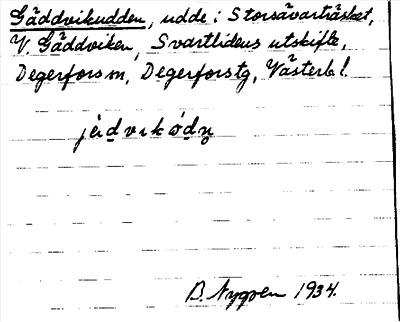 Gäddvikudden, udde i Storsävarträsket,
V. Gäddviken, Svartlidens utskifte,
Degerfors sn, Degerfors tg, Västerb. l.
B. Nygren 1934.